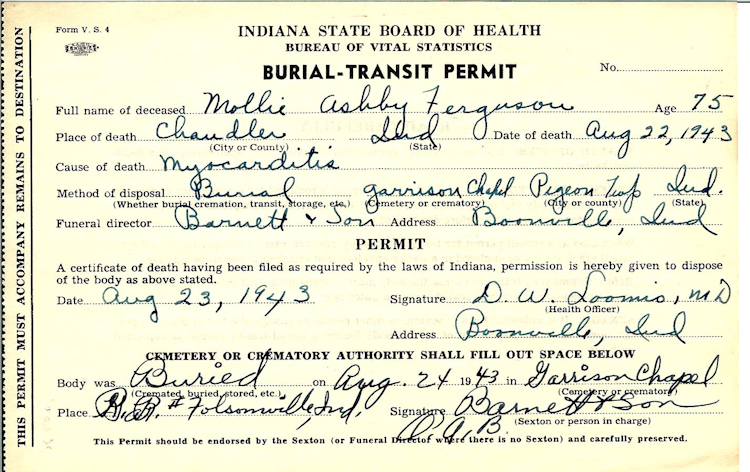 Form V. S. 4
INDIANA STATE BOARD OF HEALTH
BUREAU OF VITAL STATISTICS
BURIAL-TRANSIT PERMIT
No.
Full name of deceased Mollie Ashby Ferguson Age 75
Place of death Chandler Ind Date of death Aug 22, 1943
(City or County) (State)
Cause of death Myocarditis
Method of disposal Burial Garrison Chapel Pigeon Twp Ind.
(Whether burial, cremation, transit, storage, etc.) (Cemetery or crematory) (City or county) (State)
Funeral director Barnett & Son Address Boonville, Ind
PERMIT
A certificate of death having been filed as required by the laws of Indiana, permission is hereby given to dispose
of the body as above stated.
Date Aug 23, 1943 Signature D. W. Loomis, MD
(Health Officer)
Address Boonville, Ind
CEMETERY OR CREMATORY AUTHORITY SHALL FILL OUT SPACE BELOW
Body was Buried on Aug. 24 1943 in Garrison Chapel
(Cremated, buried, stored, etc.) (Cemetery or crematory)
Place R.R. # Folsomville, Ind. Signature Barnett & Son
(Sexton or person in charge)
This Permit should be endorsed by the Sexton (or Funeral Director where there is no Sexton) and carefully preserved.
THIS PERMIT MUST ACCOMPANY REMAINS TO DESTINATION